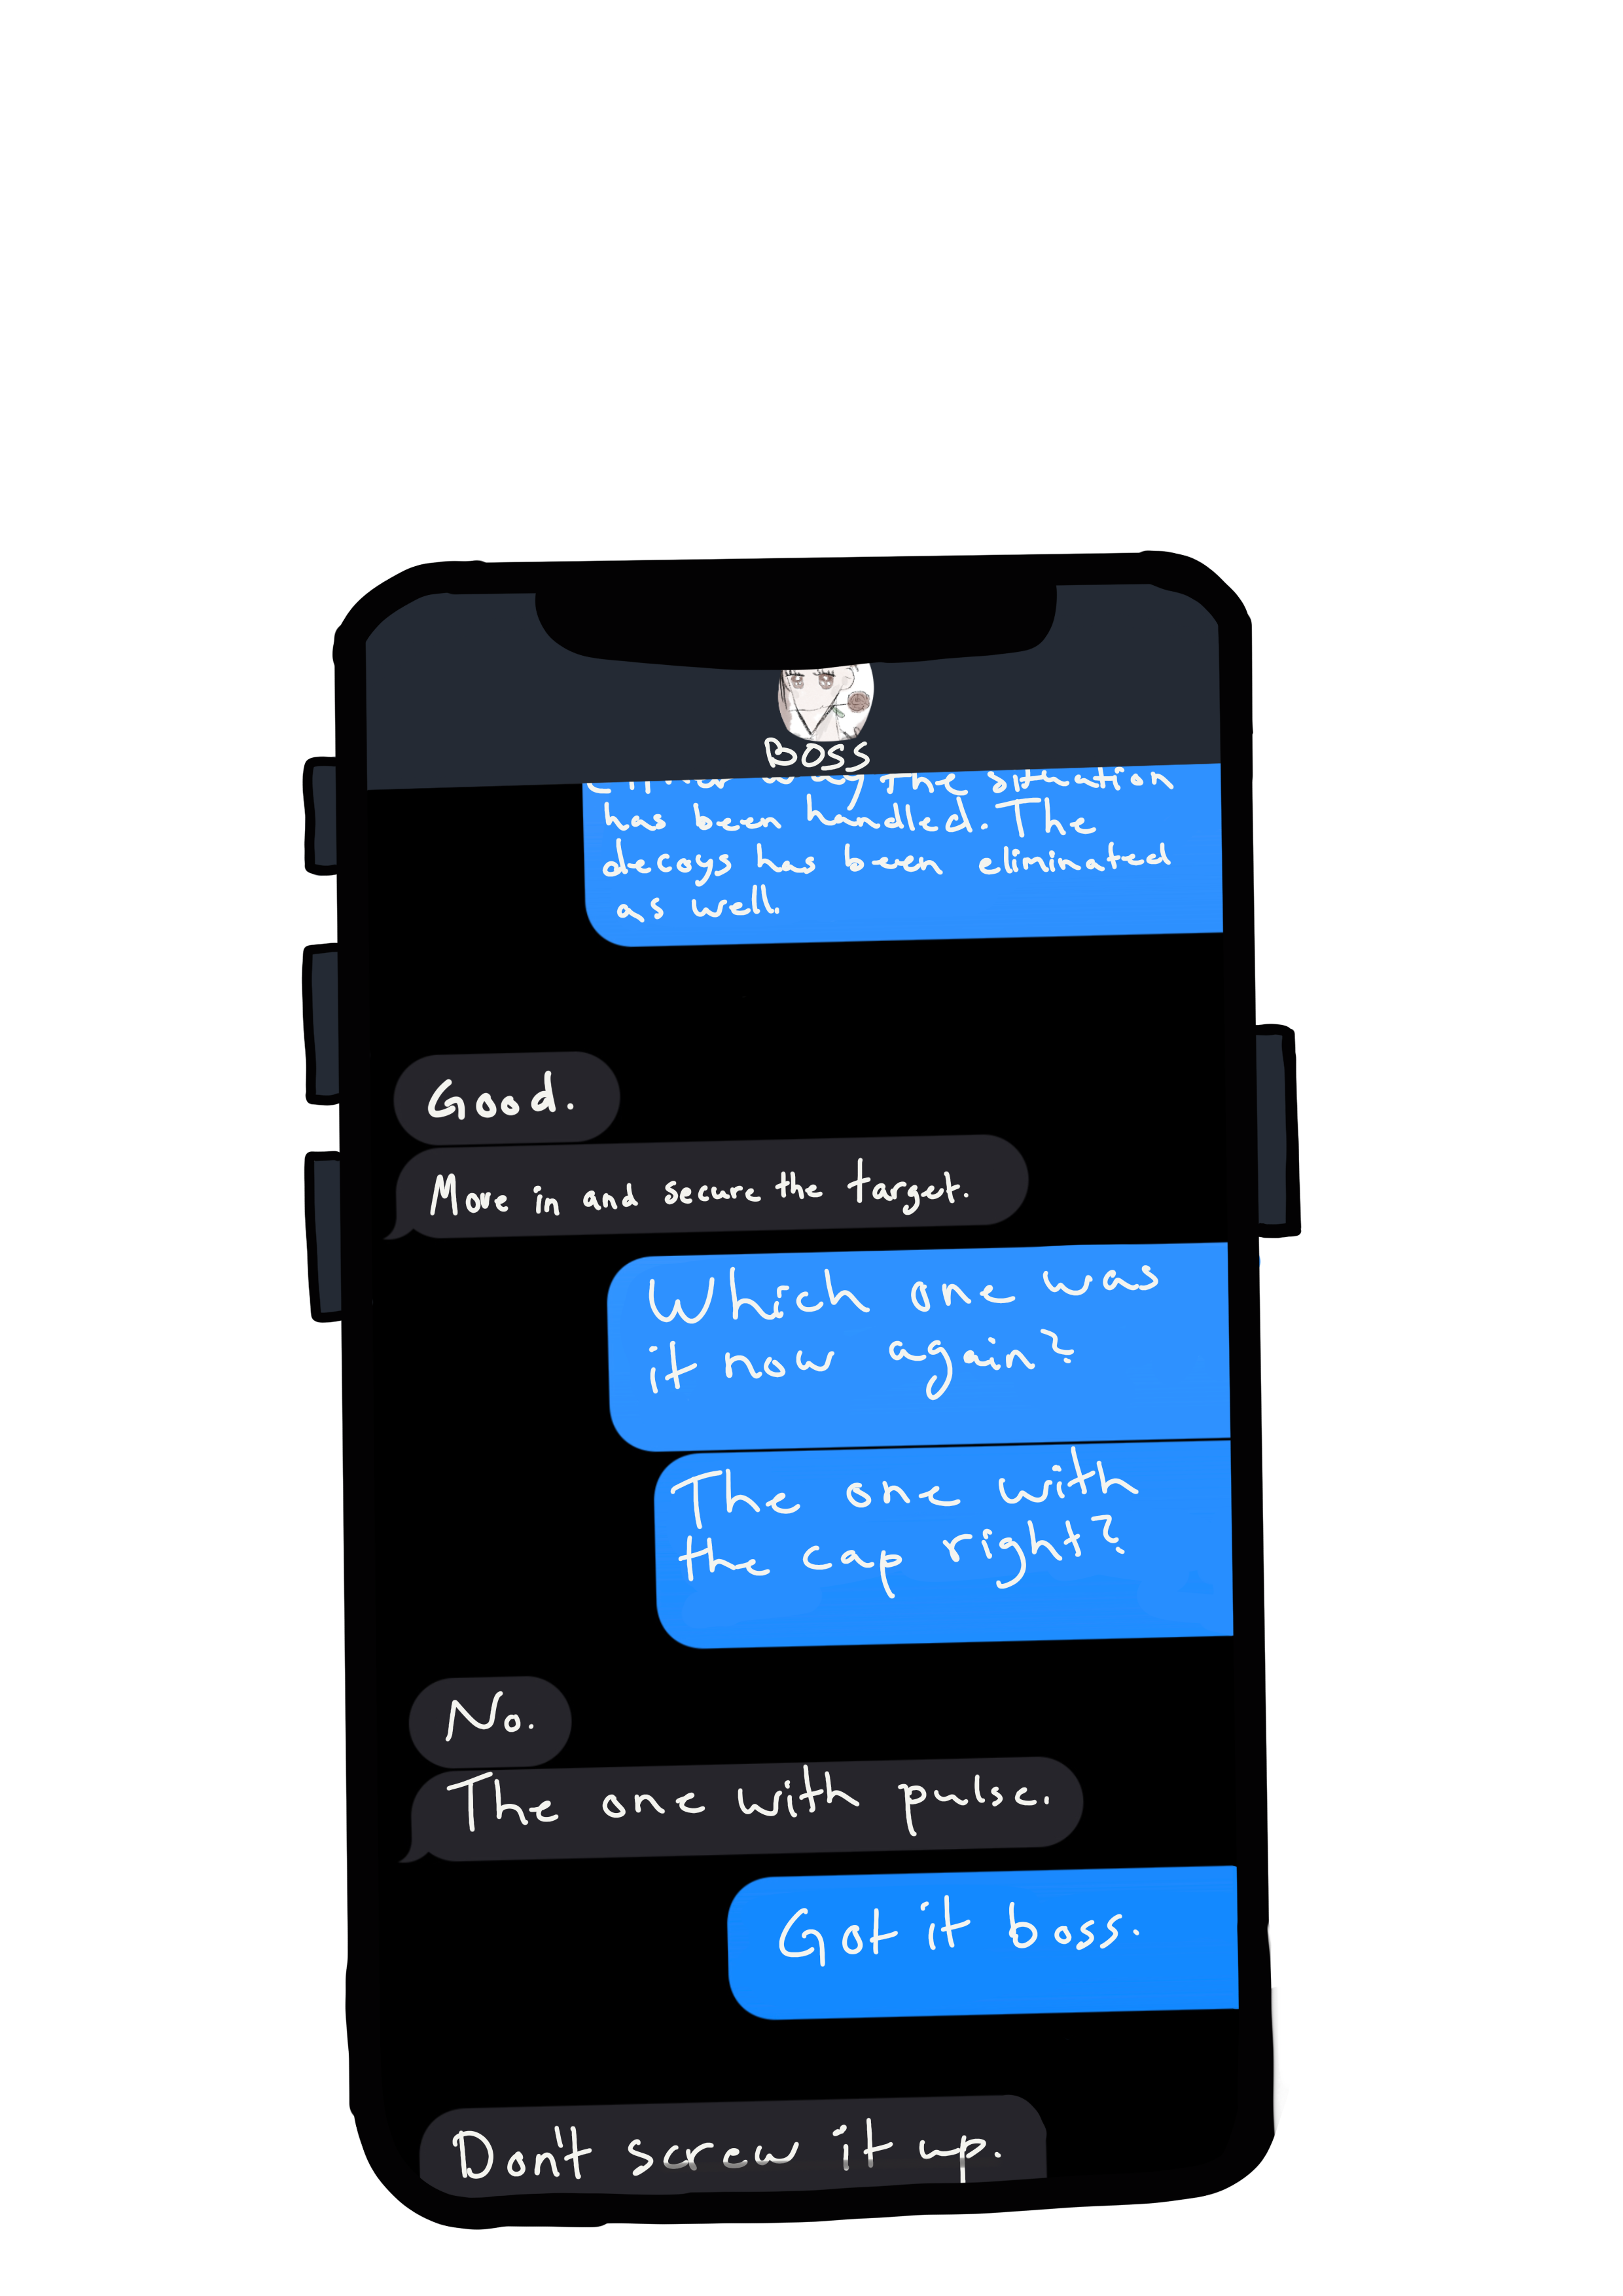 Boss
The situation
has been handled. The
decoys has been eliminated
as well.
Good.
Move in and secure the target.
Which one was
it now again?
The one with
the cap right?
No.
The one with pulse.
Got it boss.
Don't screw it up.